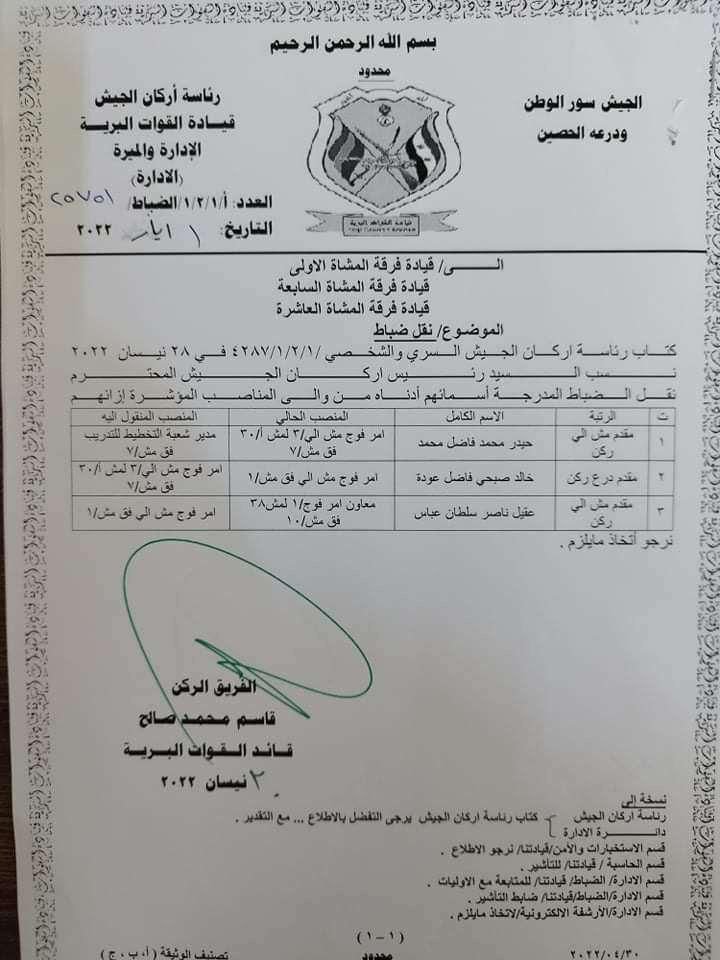 بسم الله الرحمن الرحيم
محدود
رئاسة أركان الجيش
قيادة القوات البرية
الإدارة والميرة
(الادارة)
العدد: أ/١/٢/١/الضباط/ ٢٥٧٥١
التاريخ: ١ ايار ٢٠٢٢
الجيش سور الوطن
ودرعه الحصين
قيادة القوات البرية
الـى/ قيادة فرقة المشاة الاولى
قيادة فرقة المشاة السابعة
قيادة فرقة المشاة العاشرة
الموضوع/ نقل ضباط
كتاب رئاسة اركان الجيش السري والشخصي /٤٢٨٧/١/٢/١ في ٢٨ نيسان ٢٠٢٢
نسب السيد رئيس اركان الجيش المحترم
نقل الضباط المدرجة أسمائهم أدناه من والى المناصب المؤشرة إزائهم
ت الرتبة الاسم الكامل المنصب الحالي المنصب المنقول اليه
١ مقدم مش الي ركن حيدر محمد فاضل محمد امر فوج مش الي/٣ لمش أ/٣٠ فق مش/٧ مدير شعبة التخطيط للتدريب فق مش/٧
٢ مقدم درع ركن خالد صبحي فاضل عودة امر فوج مش الي فق مش/١ امر فوج مش الي/٣ لمش أ/٣٠ فق مش/٧
٣ مقدم مش الي ركن عقيل ناصر سلطان عباس معاون امر فوج/١ لمش٣٨ فق مش/١٠ امر فوج مش الي فق مش/١
نرجو أتخاذ مايلزم .
الفريق الركن
قاسم محمد صالح
قائد القوات البرية
نيسان ٢٠٢٢
نسخة إلى
رئاسة اركان الجيش
دائرة الادارة
كتاب رئاسة اركان الجيش يرجى التفضل بالاطلاع ... مع التقدير .
قسم الاستخبارات والأمن/قيادتنا/ نرجو الاطلاع .
قسم الحاسبة / قيادتنا/ للتأشير .
قسم الادارة/ الضباط/ قيادتنا/ للمتابعة مع الاوليات .
قسم الادارة/الضباط/قيادتنا/ ضابط التأشير .
قسم الادارة/الأرشفة الالكترونية/لاتخاذ مايلزم .
(١-١)
٢٠٢٢/٠٤/٣٠
محدود
تصنيف الوثيقة (أ، ب، ج)